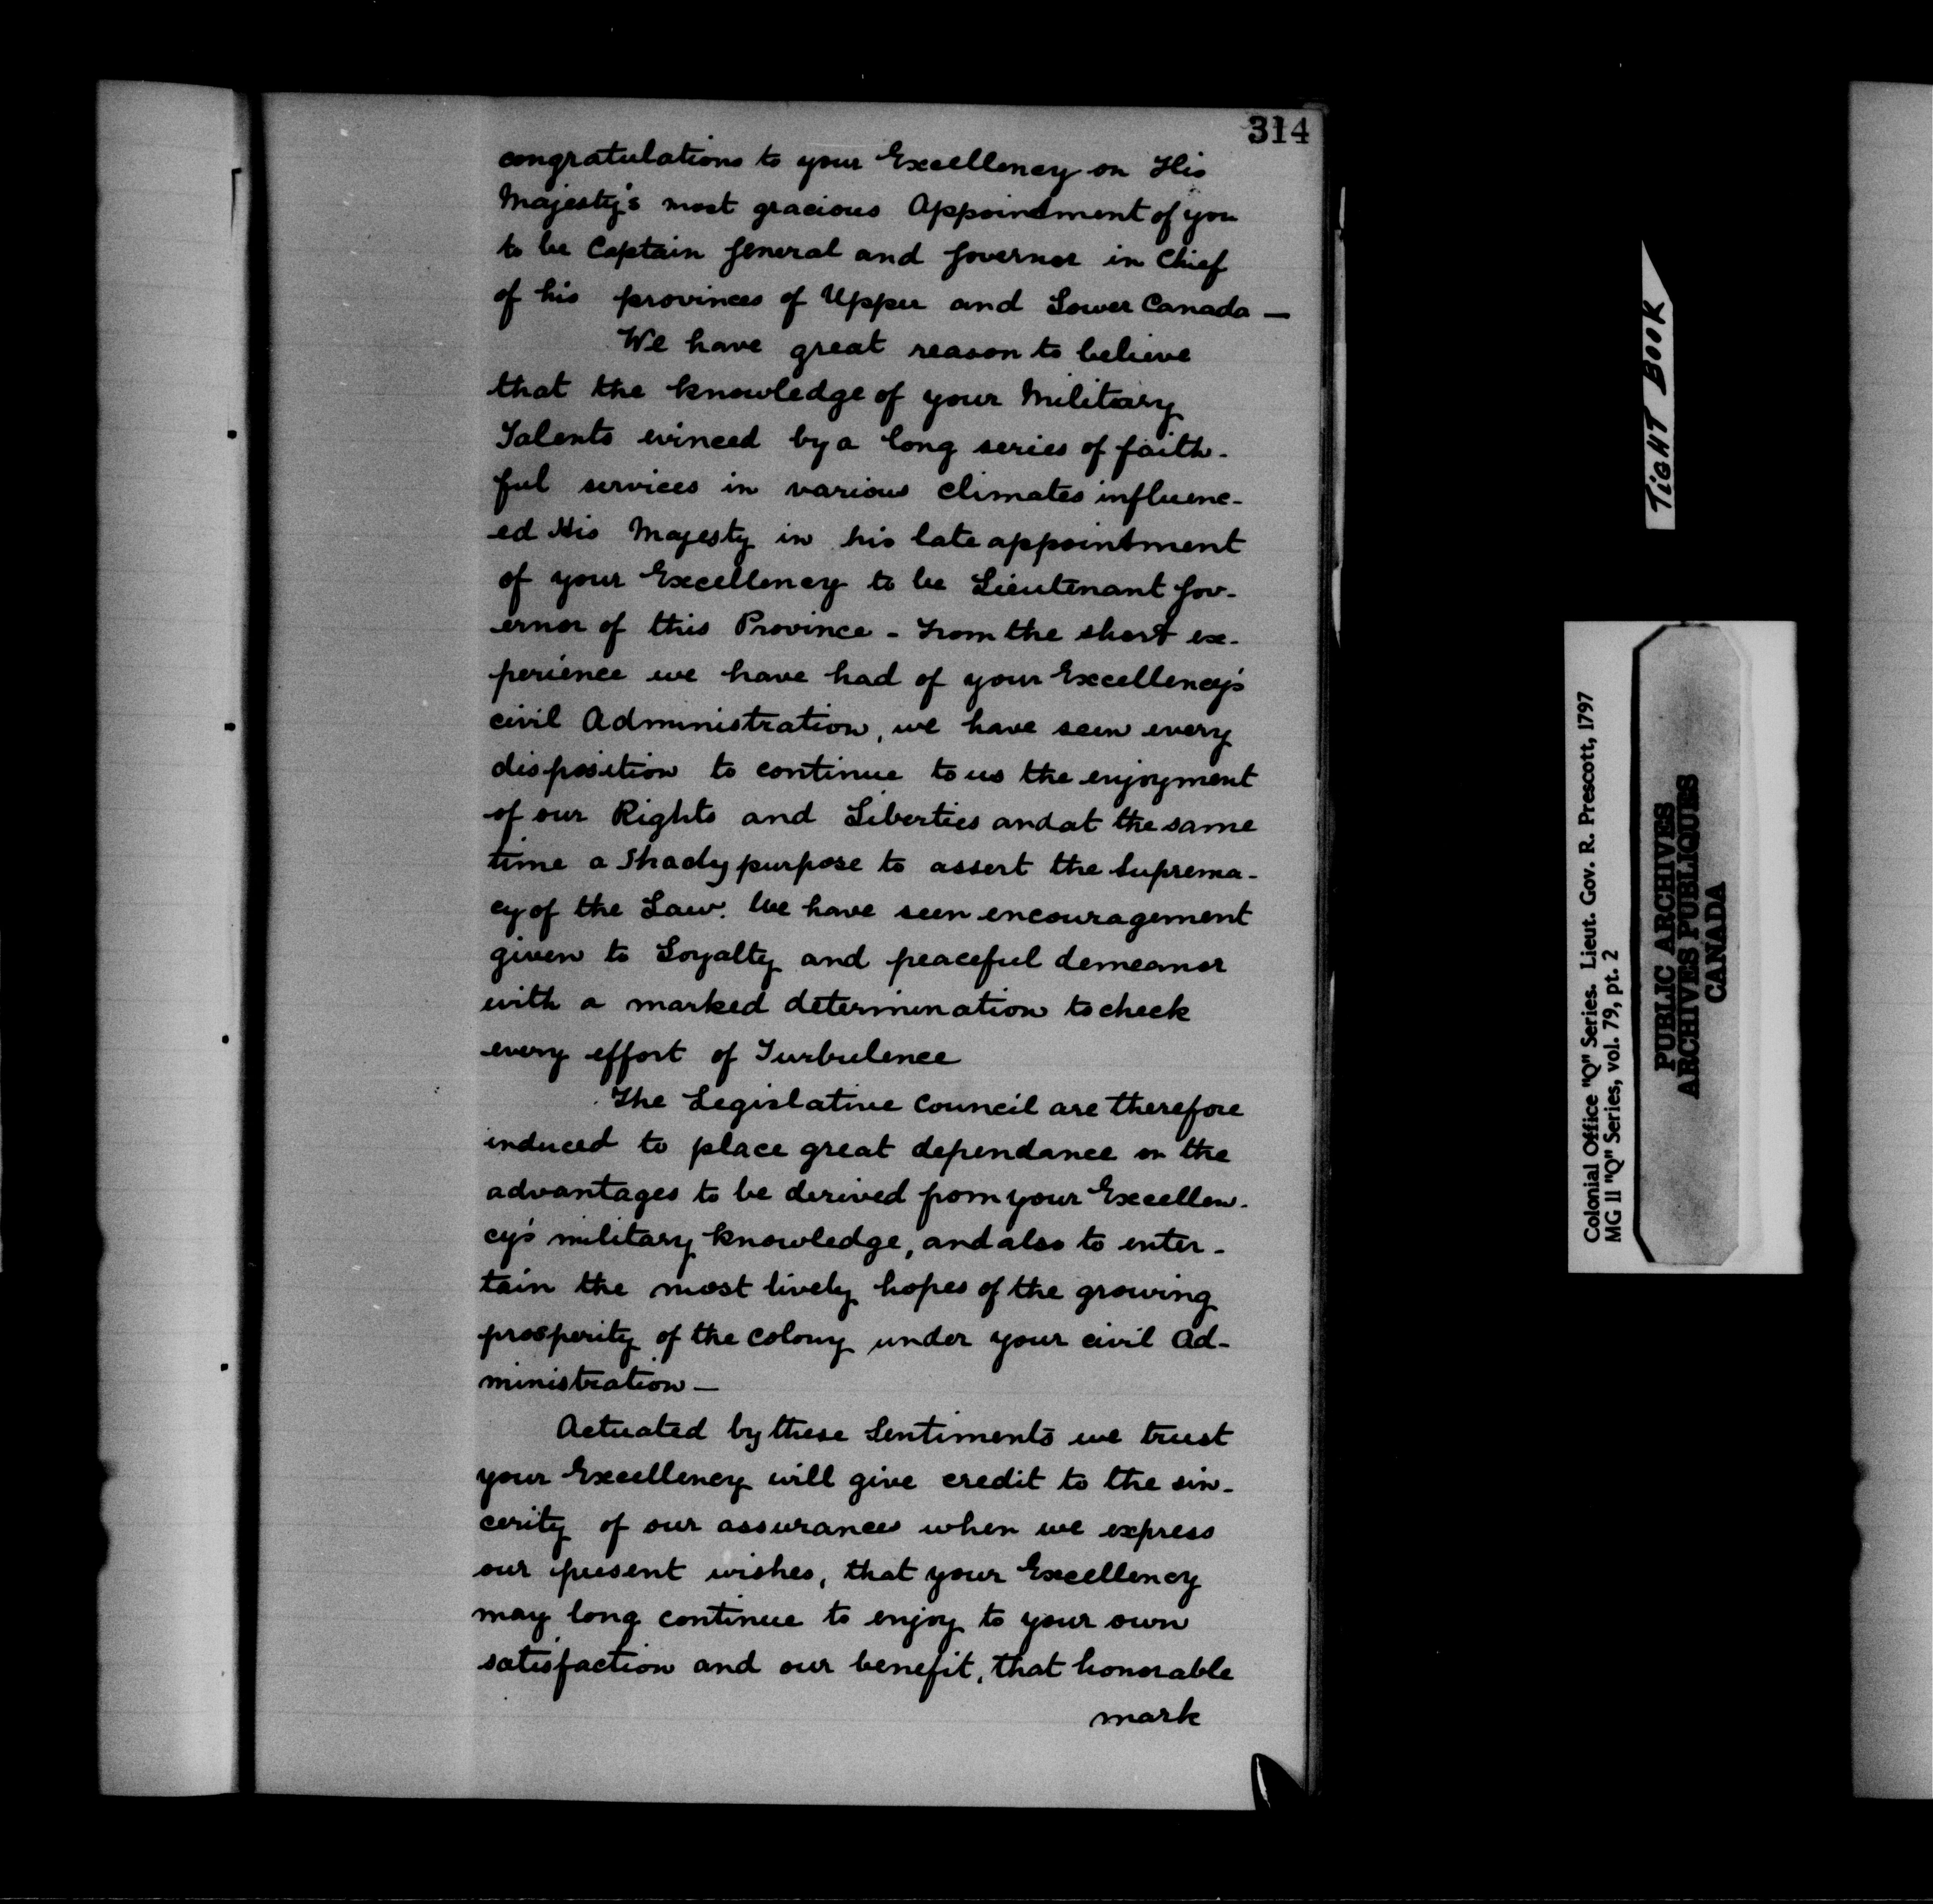 314
congratulations to your Excellency on His
Majesty's most gracious Appointment of you
to be Captain General and Governor in Chief
of his provinces of Upper and Lower Canada —
We have great reason to believe
that the knowledge of your Military
Talents evinced by a long series of faith-
ful services in various climates influenc-
ed His Majesty in his late appointment
of your Excellency to be Lieutenant Gov-
ernor of this Province - From the short ex-
perience we have had of your Excellency's
civil Administration, we have seen every
disposition to continue to us the enjoyment
of our Rights and Liberties and at the same
time a Steady purpose to assert the Suprema-
cy of the Law. We have seen encouragement
given to Loyalty and peaceful demeanor
with a marked determination to check
every effort of Turbulence
The Legislative Council are therefore
induced to place great dependance on the
advantages to be derived from your Excellen-
cy's military knowledge, and also to enter-
tain the most lively hopes of the growing
prosperity of the colony under your civil Ad-
ministration —
Actuated by these Sentiments we trust
your Excellency will give credit to the sin-
cerity of our assurances when we express
our present wishes, that your Excellency
may long continue to enjoy to your own
satisfaction and our benefit, that honorable
mark
TIGHT BOOK
Colonial Office "Q" Series. Lieut. Gov. R. Prescott, 1797
MG 11 "Q" Series, vol. 79, pt. 2
PUBLIC ARCHIVES
ARCHIVES PUBLIQUES
CANADA